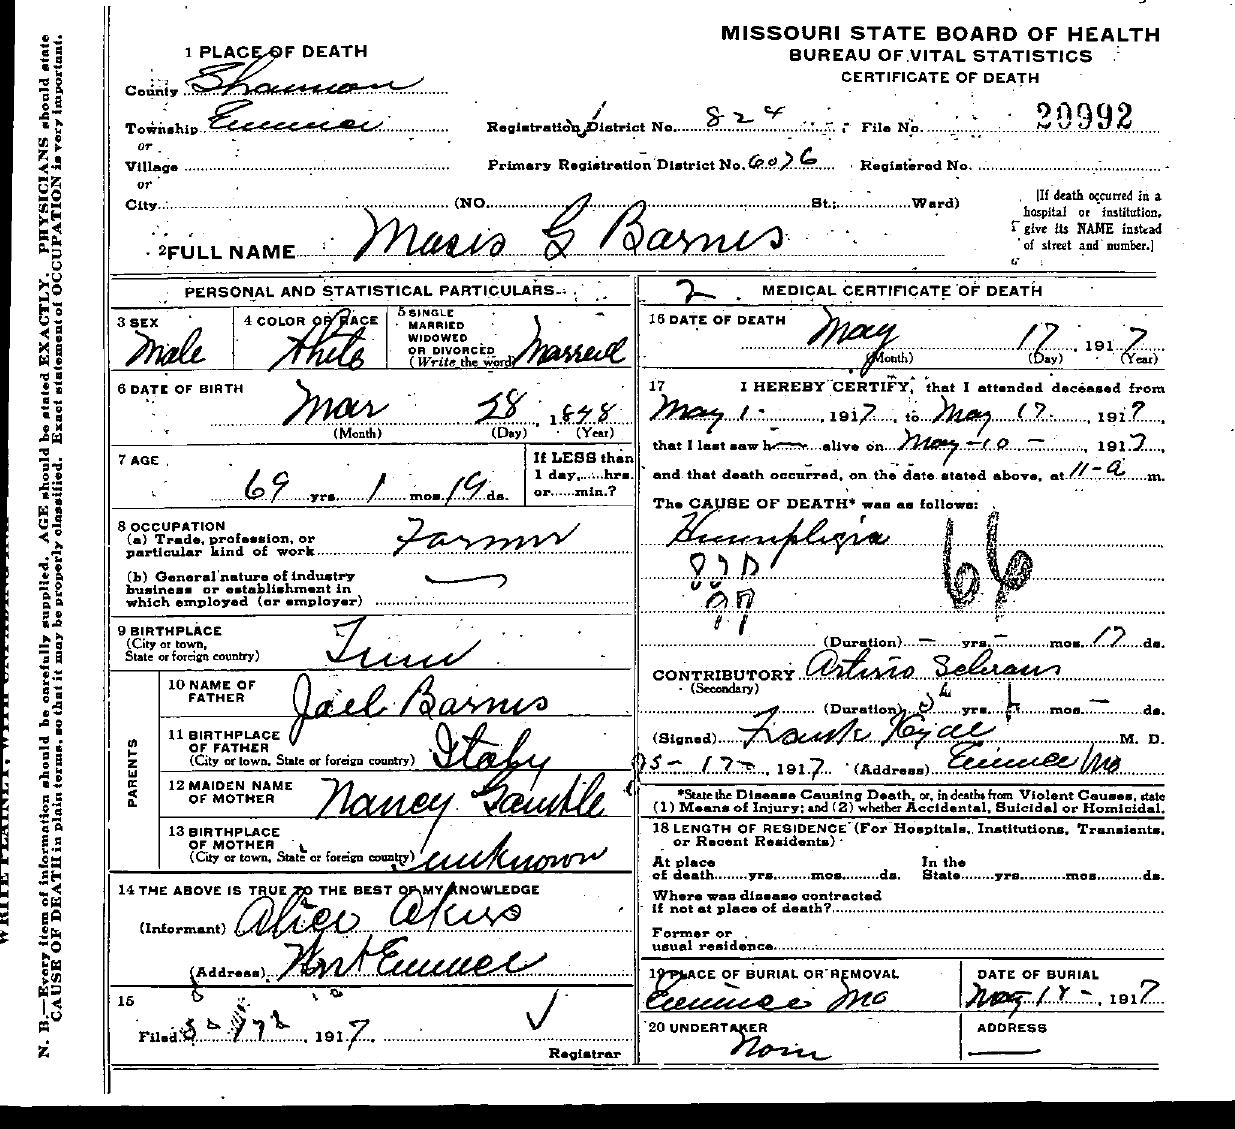 MISSOURI STATE BOARD OF HEALTH
BUREAU OF VITAL STATISTICS
CERTIFICATE OF DEATH
1 PLACE OF DEATH
County Shannon
Township Eminence
or
Village
or
City (NO. St.; Ward)
Registration District No. 824 File No. 20992
Primary Registration District No. 6076 Registered No.
[If death occurred in a
hospital or institution,
give its NAME instead
of street and number.]
2 FULL NAME G Barnes
PERSONAL AND STATISTICAL PARTICULARS
3 SEX
Male
4 COLOR OR RACE
White
5 SINGLE
MARRIED
WIDOWED
OR DIVORCED
(Write the word) Married
6 DATE OF BIRTH
Mar 28, 1848
(Month) (Day) (Year)
7 AGE
69 yrs. 1 mos. 19 ds.
If LESS than
1 day, hrs.
or min.?
8 OCCUPATION
(a) Trade, profession, or
particular kind of work Farmer
(b) General nature of industry
business or establishment in
which employed (or employer)
9 BIRTHPLACE
(City or town,
State or foreign country) Tenn
PARENTS
10 NAME OF
FATHER Joel Barnes
11 BIRTHPLACE
OF FATHER
(City or town, State or foreign country) Italy
12 MAIDEN NAME
OF MOTHER Nancy Gamble
13 BIRTHPLACE
OF MOTHER
(City or town, State or foreign country) unknown
14 THE ABOVE IS TRUE TO THE BEST OF MY KNOWLEDGE
(Informant) Alice Akers
(Address) Eminence
15
Filed 1917
Registrar
2 MEDICAL CERTIFICATE OF DEATH
16 DATE OF DEATH
May 17, 1917
(Month) (Day) (Year)
17 I HEREBY CERTIFY, that I attended deceased from
May 1-, 1917, to May 17, 1917
that I last saw h alive on May-10-, 1917,
and that death occurred, on the date stated above, at 11-a m.
The CAUSE OF DEATH* was as follows:
66
(Duration) - yrs. - mos. 17 ds.
CONTRIBUTORY
(Secondary)
(Duration) yrs. mos. - ds.
(Signed) Frank Hyde M. D.
5-17-, 1917 (Address) Eminence Mo
*State the Disease Causing Death, or, in deaths from Violent Causes, state
(1) Means of Injury; and (2) whether Accidental, Suicidal or Homicidal.
18 LENGTH OF RESIDENCE (For Hospitals, Institutions, Transients,
or Recent Residents)
At place
of death yrs. mos. ds.
In the
State yrs. mos. ds.
Where was disease contracted
if not at place of death?
Former or
usual residence
19 PLACE OF BURIAL OR REMOVAL
Eminence Mo
DATE OF BURIAL
May 18-, 1917
20 UNDERTAKER
None
ADDRESS
N. B.—Every item of information should be carefully supplied. AGE should be stated EXACTLY. PHYSICIANS should state
CAUSE OF DEATH in plain terms, so that it may be properly classified. Exact statement of OCCUPATION is very important.